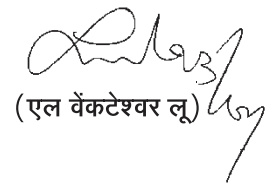 (एल वेंकटेश्वर लू)